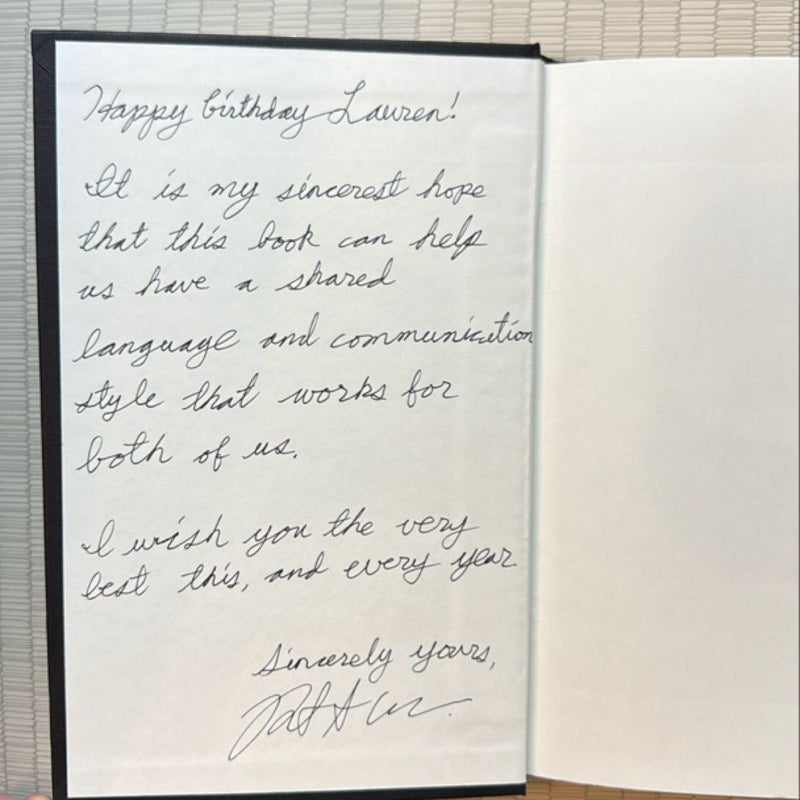 Happy birthday Lauren!
It is my sincerest hope
that this book can help
us have a shared
language and communication
style that works for
both of us.
I wish you the very
best this, and every year.
Sincerely yours,